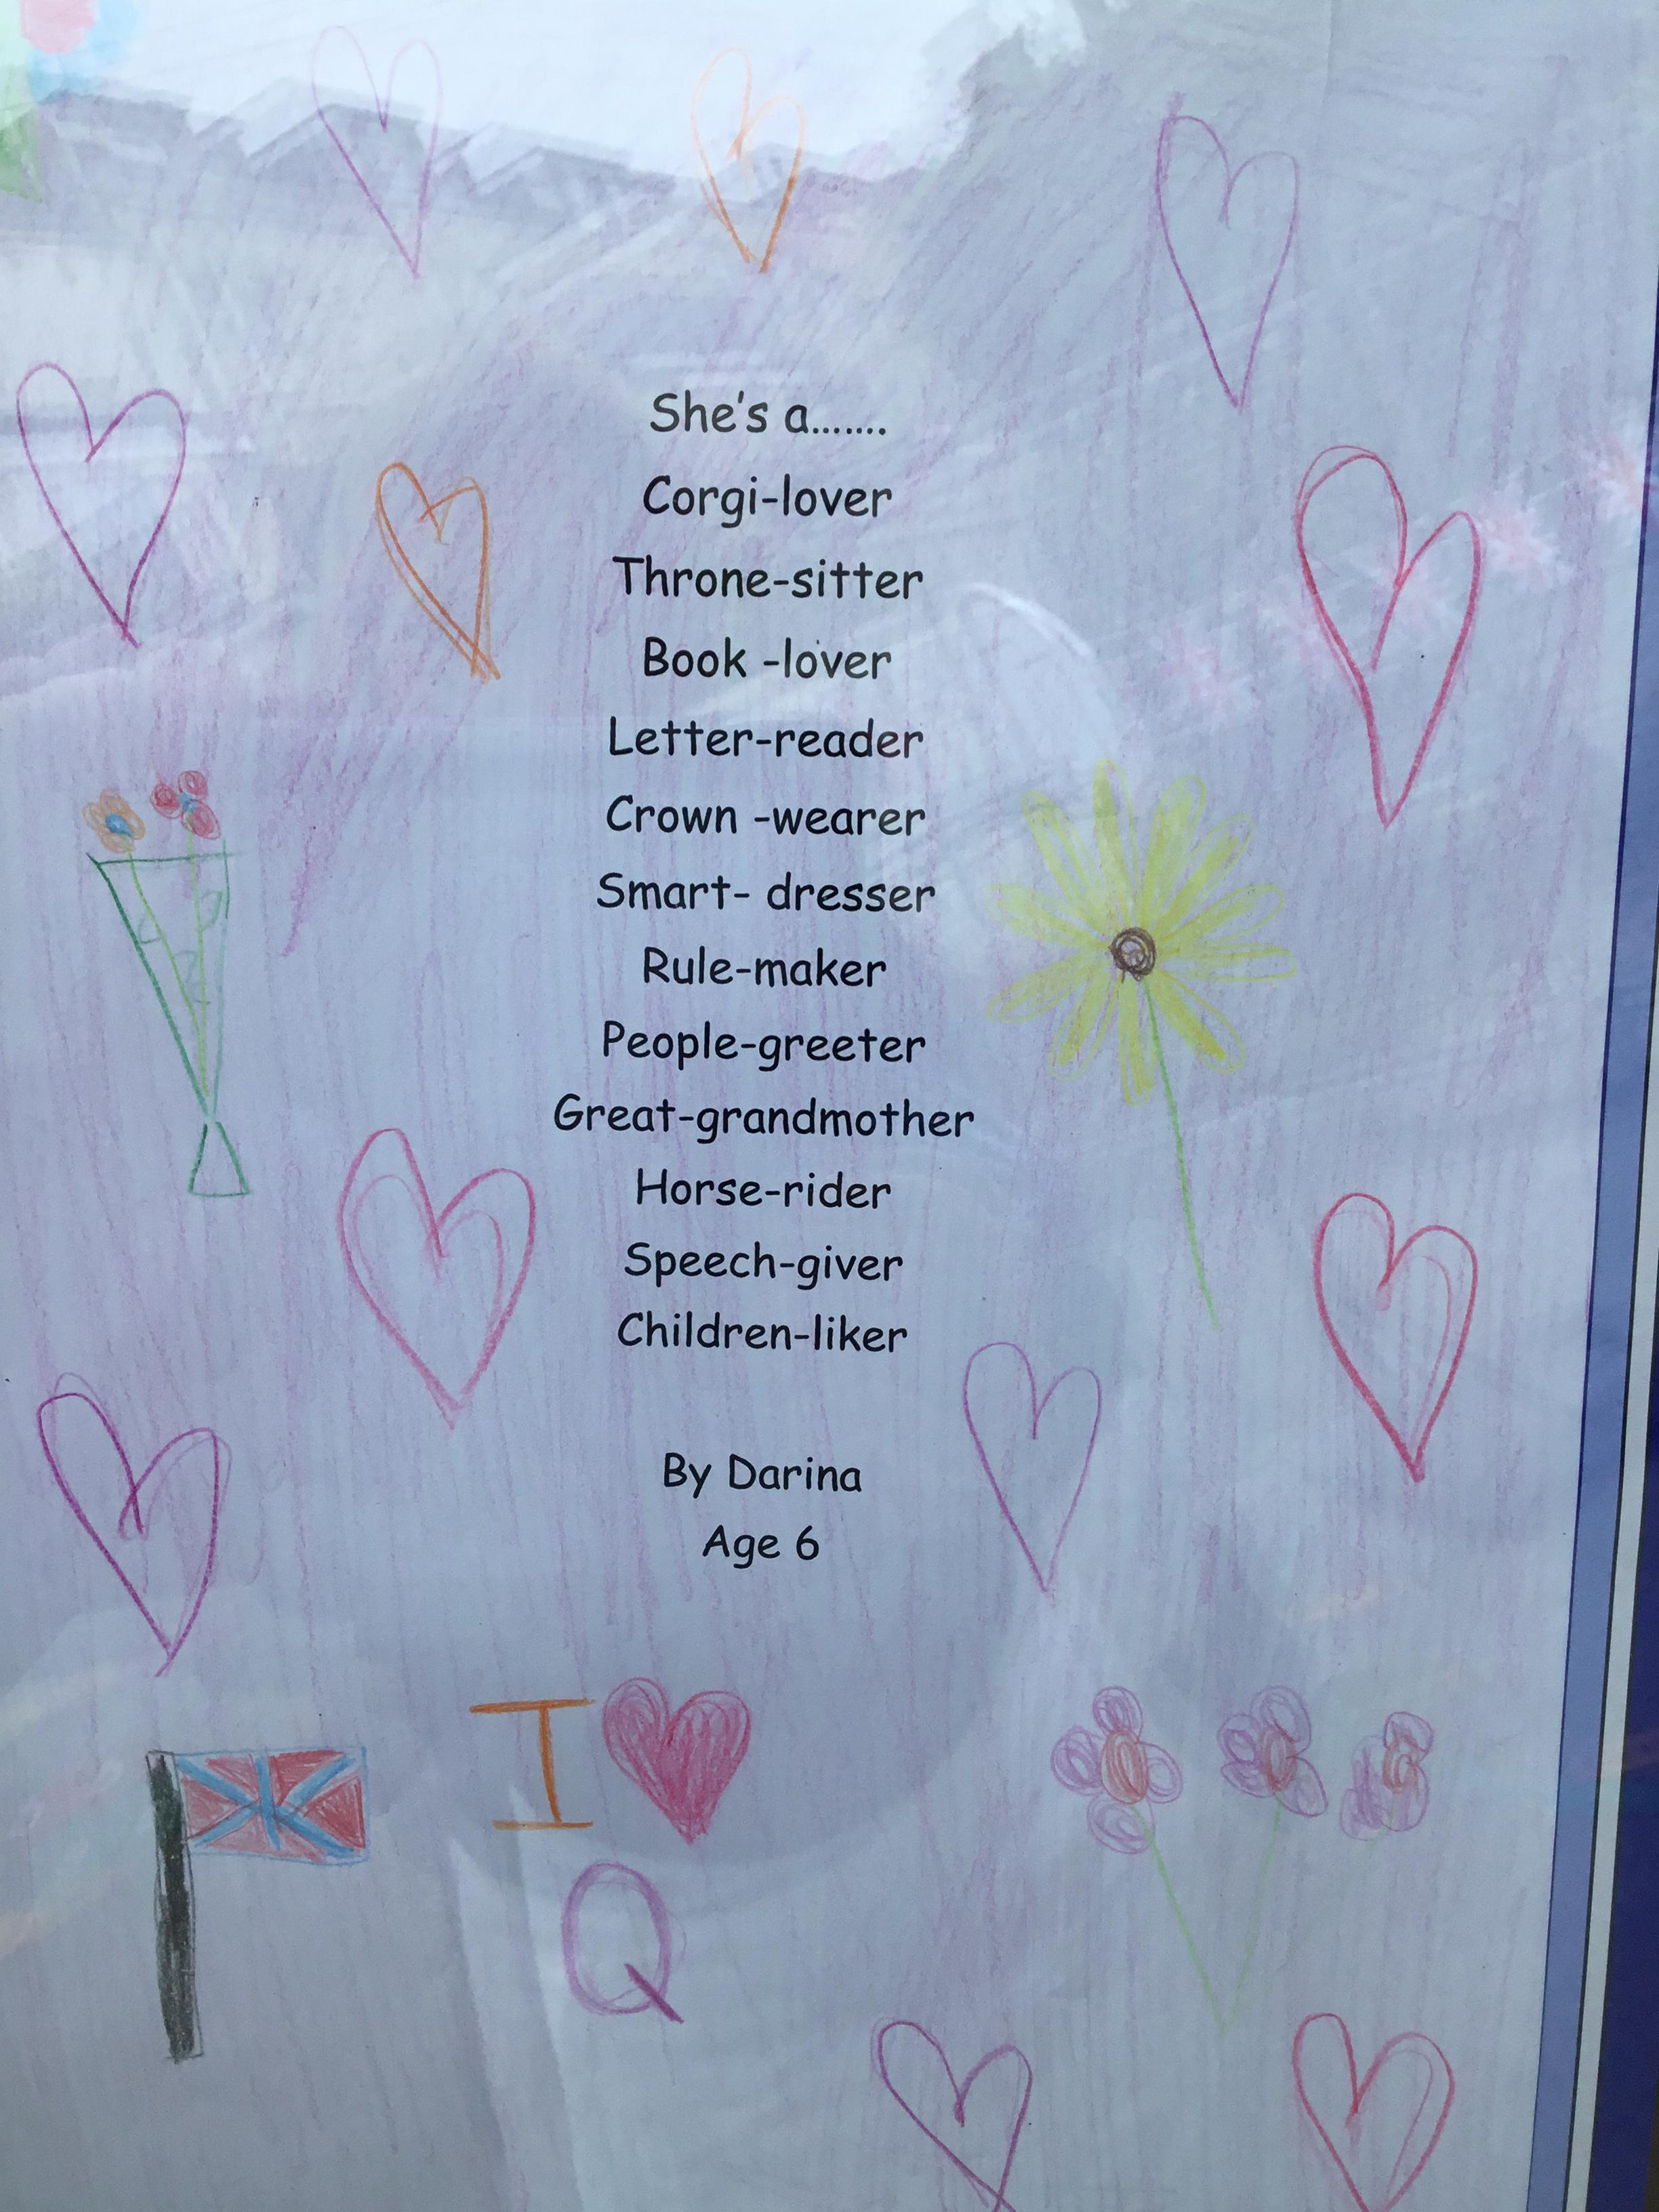 She's a.......
Corgi-lover
Throne-sitter
Book -lover
Letter-reader
Crown -wearer
Smart- dresser
Rule-maker
People-greeter
Great-grandmother
Horse-rider
Speech-giver
Children-liker
By Darina
Age 6
I
Q